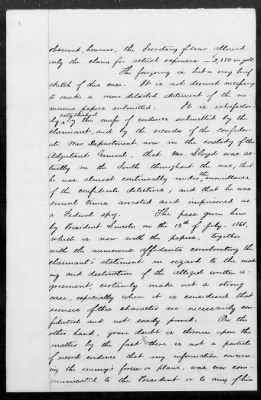 observed, however, the Secretary of war allowed
only the claim for actual expenses — 2,380 in gold.
The foregoing is but a very brief
sketch of this case. It is not deemed necessary
to make a more detailed statement of the nu-
merous papers submitted. It is satisfactor-
ily established by the mass of evidence submitted by the
claimant, and by the records of the confeder-
ate War Department now in the custody of the
Adjutant General, that Mr. Lloyd was ac-
tually in the South throughout the war, that
he was almost continually under the surveillance
of the confederate detectives, and that he was
several times arrested and imprisoned as
a Federal spy. The pass given him
by President Lincoln on the 13th of July, 1861,
which is now with the papers, together
with the numerous affidavits corroborating the
claimant's statement in regard to the mak-
ing and destruction of the alleged written a-
greement, certainly make out a strong
case, especially when it is considered that
services of this character are necessarily con-
fidential and not easily proved. On the
other hand, grave doubt is thrown upon the
matter by the fact there is not a particle
of record evidence that any information concern-
ing the enemy's forces or plans, was ever com-
municated to the President or to any of his